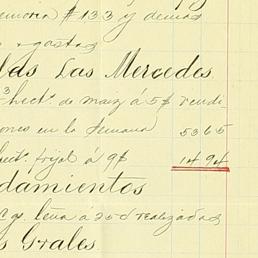 memoria $133 y demas
s gastos
las Las Mercedes
3 hect. de maiz á 5$ rendi
ones en la semana 5365
hect. frijol á 9$ 1494
damientos
Cgs. leña á 25¢ realizadas
s Grales